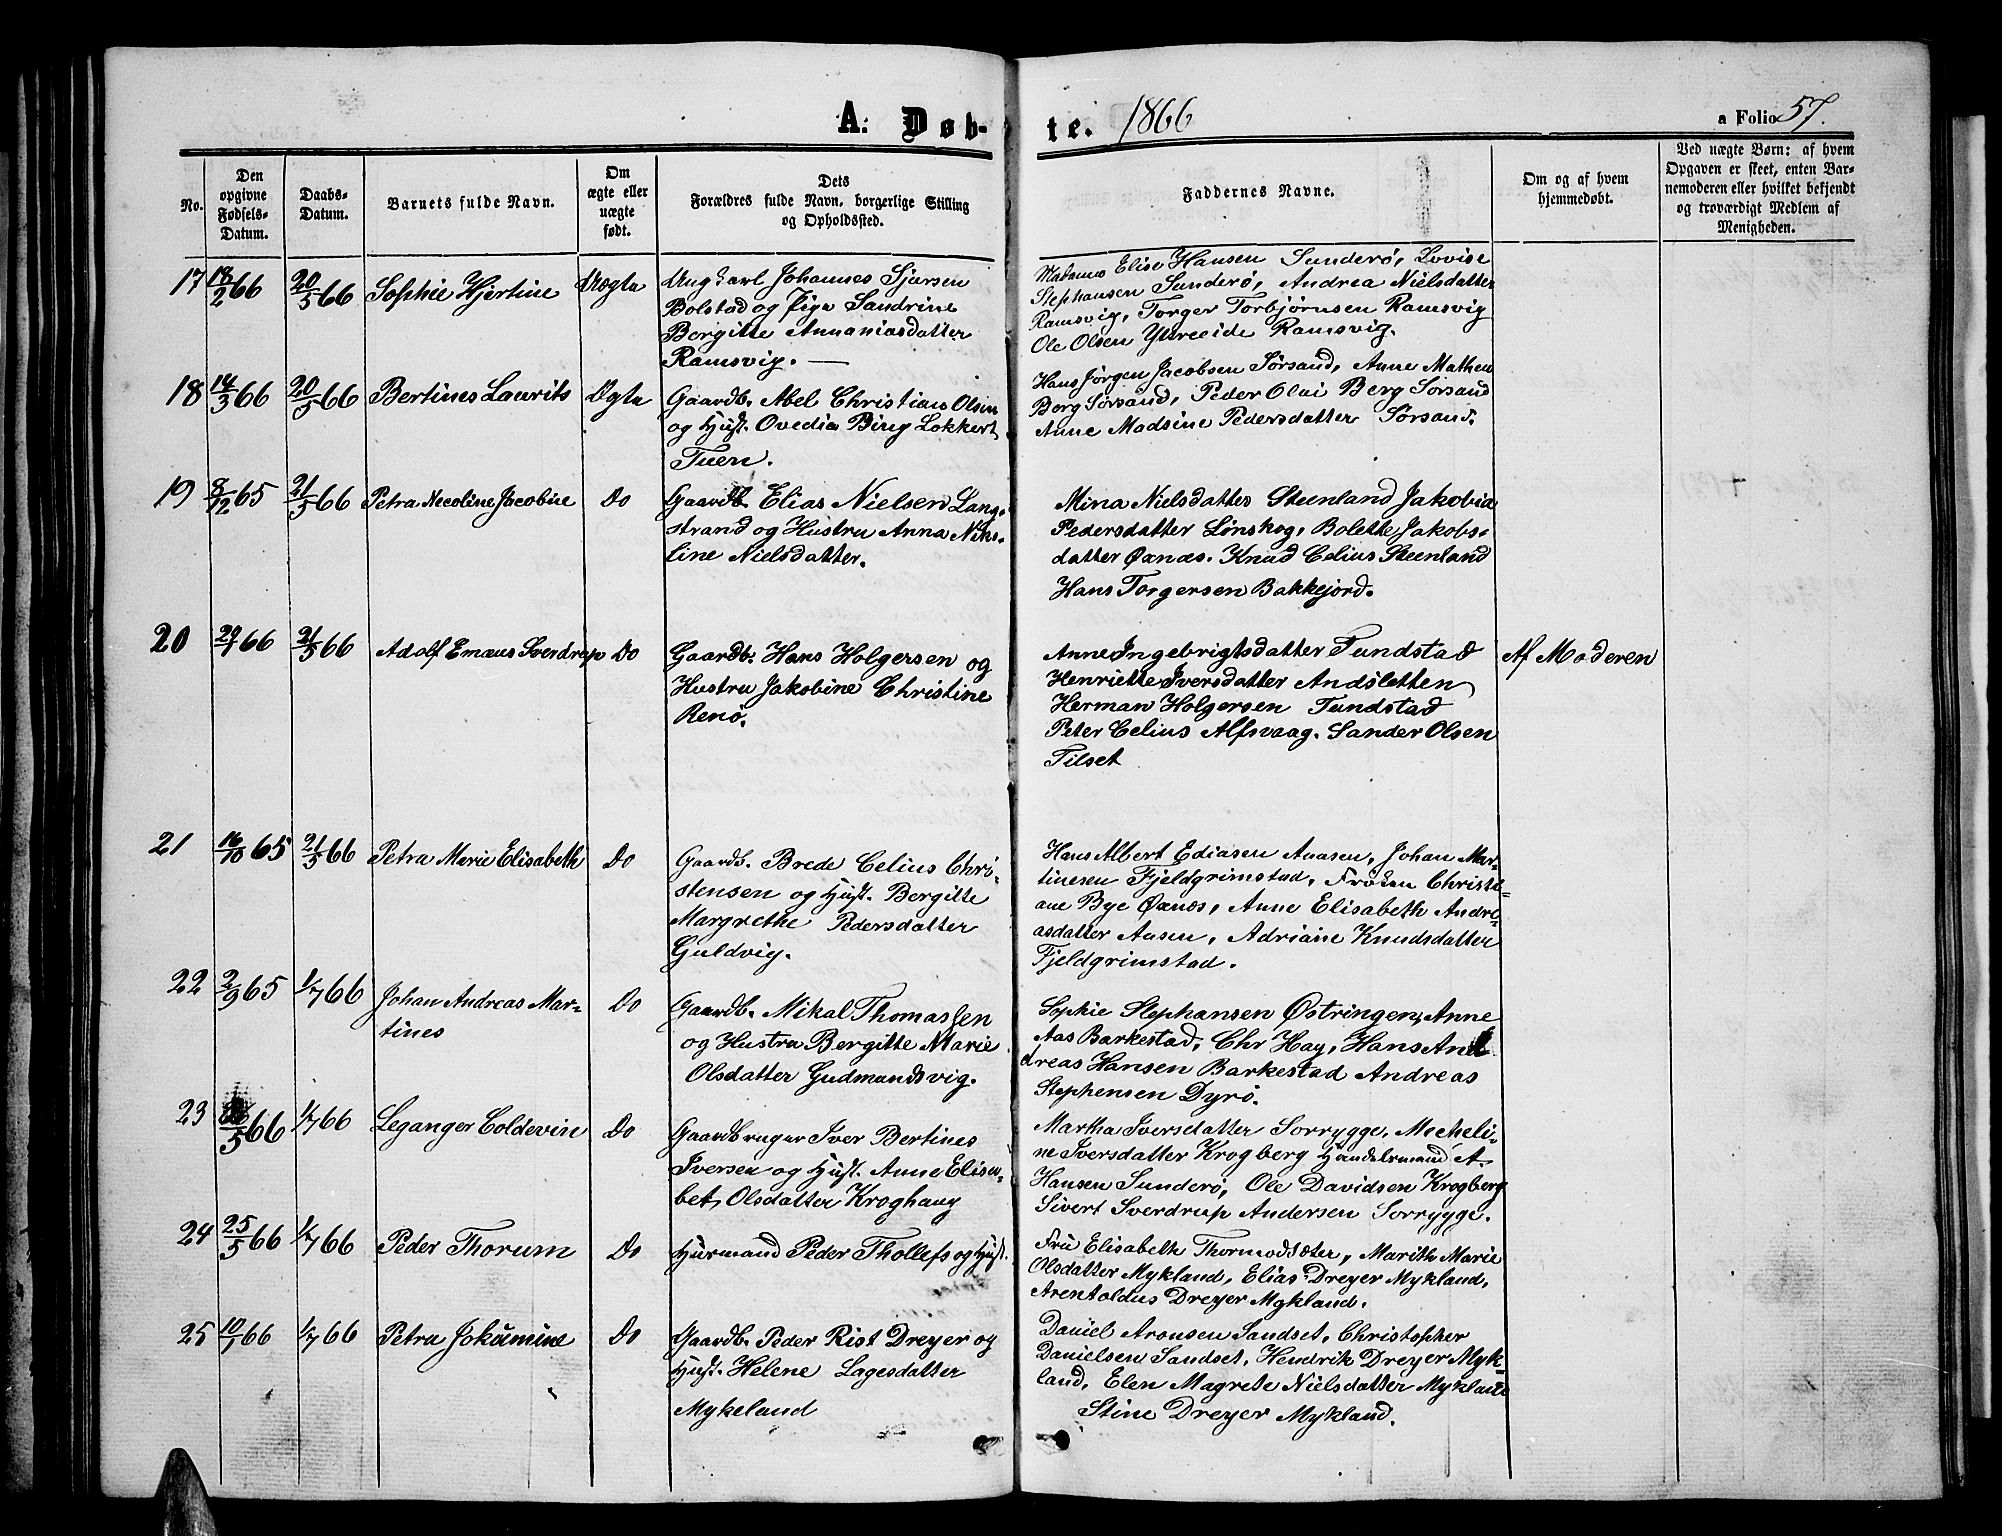 A. Døb-
te. 1866
a Folio 57.
No.
Den
opgivne
Fødsels-
Datum.
Daabs-
Datum.
Barnets fulde Navn.
Om
ægte eller
uægte
født.
Dets
Forældres fulde Navn, borgerlige Stilling
og Opholdssted.
Faddernes Navne.
Om og af hvem
hjemmedøbt.
Ved uægte Børn: af hvem
Opgaven er skeet, enten Bar-
nemoderen eller hvilket bekjendt
og troværdigt Medlem af
Menigheden.
17 18/2 66 20/5 66 Sophie Hjertine Uægte
Ungkarl Johannes Sjursen
Bolstad og Pige Sandrine
Bergitte Annaniasdatter
Ramsvig.
Madame Elise Hansen Sunderø, Lovise
Stephansen Sunderø, Andrea Nielsdatter
Ramsvig, Torger Torbjørnsen Ramsvig
Ole Olsen Yttreeide Ramsvig.
18 14/3 66 20/5 66 Bertines Laurits Ægte
Gaardb. Abel Christian Olsen
og Hust. Ovedia Bing Lokkert
Tuen.
Hans Jørgen Jacobsen Sørsand, Anne Mathea
Berg Sørsand, Peder Olai Berg Sørsand
Anne Madsine Pedersdatter Sørsand.
19 8/12 65 21/5 66 Petra Necoline Jacobine Do
Gaardb. Elias Nielsen Lang-
strand og Hustru Anna Niko-
line Nielsdatter.
Mina Nielsdatter Steenland Jakobia
Pedersdatter Lønskog, Bolette Jakobs-
datter Øxnæs. Knud Celius Steenland
Hans Torgersen Bakkejord.
20 29/1 66 21/5 66 Adolf Emæus Sverdrup Do
Gaardb. Hans Holgersen og
Hustru Jakobine Christine
Renø.
Anne Ingebrigtsdatter Tundstad
Henriette Iversdatter Andsletten
Herman Holgersen Tundstad
Peter Celius Alfsvaag. Sander Olsen
Tilset
Af Moderen
21 16/10 65 21/5 66 Petra Marie Elisabeth Do
Gaardb. Brede Celius Chri-
stensen og Hust. Bergitte
Margrethe Pedersdatter
Guldvig.
Hans Albert Ediasen Aaasen, Johan Mar-
tinesen Fjeldgrimstad, Frøken Christi-
ane Bye Øxnæs, Anne Elisabeth Andre-
asdatter Aasen, Adriane Knudsdatter
Fjeldgrimstad.
22 2/9 65 1/7 66 Johan Andreas Mar-
tines Do
Gaardb. Mikal Thomassen
og Hustru Bergitte Marie
Olsdatter Gudmundsvig.
Sophie Stephansen Østringen, Anne
Aas Barkestad, Chr Hay, Hans An
dreas Hansen Barkestad Andreas
Stephensen Dyrø.
23 /5 66 1/7 66 Leganger Coldevin Do
Gaardbruger Iver Bertines
Iversen og Hust. Anne Elisa-
bet, Olsdatter Kroghaug
Martha Iversdatter Sorrygge, Micheli-
ne Iversdatter Krogberg Handelsmand A.
Hansen Sunderø, Ole Davidsen Krogberg
Sivert Sverdrup Andersen Sorrygge.
24 25/5 66 1/7 66 Peder Thorum Do
Husmand Peder Thollefs og Hust.
Fru Elisabeth Thormodsæter, Marith Marie
Olsdatter Mykland, Elias Dreyer Mykland,
Arentoldus Dreyer Mykland.
25 10/1 66 1/7 66 Petra Jokumine Do
Gaardb. Peder Rist Dreyer og
Hust. Helene Lagesdatter
Mykeland
Daniel Aronsen Sandset, Christopher
Danielsen Sandset, Hendrik Dreyer Myk-
land, Elen Magrete Nielsdatter Mykland
Stine Dreyer Mykland.